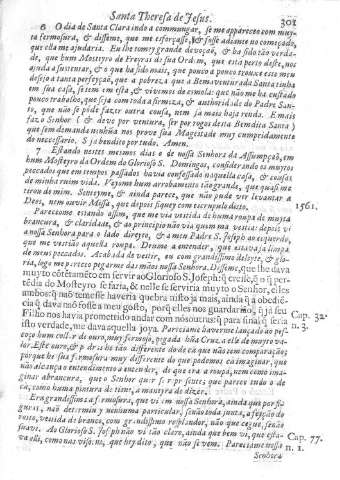 Santa Theresa de Jesus. 301
6 O dia de Santa Clara indo a commungar, se me appareceo com muy-
ta fermosura, & disseme, que me esforçasse, & fosse adiante no começado,
que ella me ajudaria. Eu lhe tomey grande devoção, & ha sido tão verda-
de, que hum Mosteyro de Freyras de sua Ordem, que esta perto deste, nos
ajuda a sustentar, & o que ha sido mais, que pouco a pouco trouxe este meu
desejo a tanta perfeyção, que a pobreza que a Bemaventurada Santa tinha
em sua casa, se tem em esta, & vivemos de esmola: que não me ha custado
pouco trabalho, que seja com toda a firmeza, & authoridade do Padre San-
to, que não se póde fazer outra cousa, nem ja mais haja renda. E mais
faz o Senhor (& deve por ventura, ser por rogos desta Bendita Santa)
que sem demanda nenhũa nos prove sua Magestade muy cumpridamente
do necessario. Seja bendito por tudo. Amen.
7 Estando nestes mesmos dias o de nossa Senhora da Assumpção, em
hum Mosteyro da Ordem do Glorioso S. Domingos, considerando os muytos
peccados que em tempos passados havia confessado naquella casa, & cousas
de minha ruim vida. Veyome hum arrobamento tão grande, que quasi me
tirou de mim. Senteyme, & ainda parece, que não pude ver levantar a
Deos, nem ouvir Missa, que depois fiquey com escrupulo disto. 1561.
Pareceome estando assim, que me via vestida de huma roupa de muyta
brancura, & claridade, & ao principio não via quem ma vestia: depois vi
a nossa Senhora para o lado direyto, & a meu Padre S. Joseph ao esquerdo,
que me vestião aquella roupa. Deuseme a entender, que estava ja limpa
de meus peccados. Acabada de vestir, eu com grandissimo deleyte, & glo-
ria, logo me pareceo pegarme das mãos nossa Senhora. Disseme, que lhe dava
muyto cõtẽtamẽto em servir ao Glorioso S. Joseph: q̃ cresse, q̃ o q̃ per-
tẽdia do Mosteyro se faria, & nelle se serviria muyto o Senhor, & elles
ambos: q̃ não temesse haveria quebra nisto ja mais, ainda q̃ a obediẽ-
cia q̃ dava não fosse a meu gosto, porq̃ elles nos guardariaõ, q̃ já seu
Filho nos havia promettido andar com nósoutras: q̃ para sinal q̃ seria Cap. 32.
isto verdade, me dava aquella joya. Pareciame haverme lançado ao pes- n. 3.
coço hum collar de ouro, muy fermoso, pegada hũa Cruz a elle de muyto va-
lor. Este ouro, & pedras he tão differente do de cá que não tem comparação;
porque he sua fermosura muy differente do que podemos cá imaginar, que
não alcança o entendimento a entender, de que era a roupa, nem como ima-
ginar a brancura, que o Senhor quer se represente; que parece tudo o de
cá, como huma pintura de tinta, a maneyra de dizer.
Era grandissima a fermosura, que vi em nossa Senhora, ainda que por fi-
guras, não determiney nenhuma particular, senão toda junta, a feyção do
rosto, vestida de branco, com grandissimo resplandor, não que cegue, senão
suave. Ao Glorioso S. Joseph não vi tão claro, ainda que bem vi, que esta-
va alli, como nas visões, que hey dito, que não se vem. Pareciame nossa Cap. 77. n. 1.
Senhora